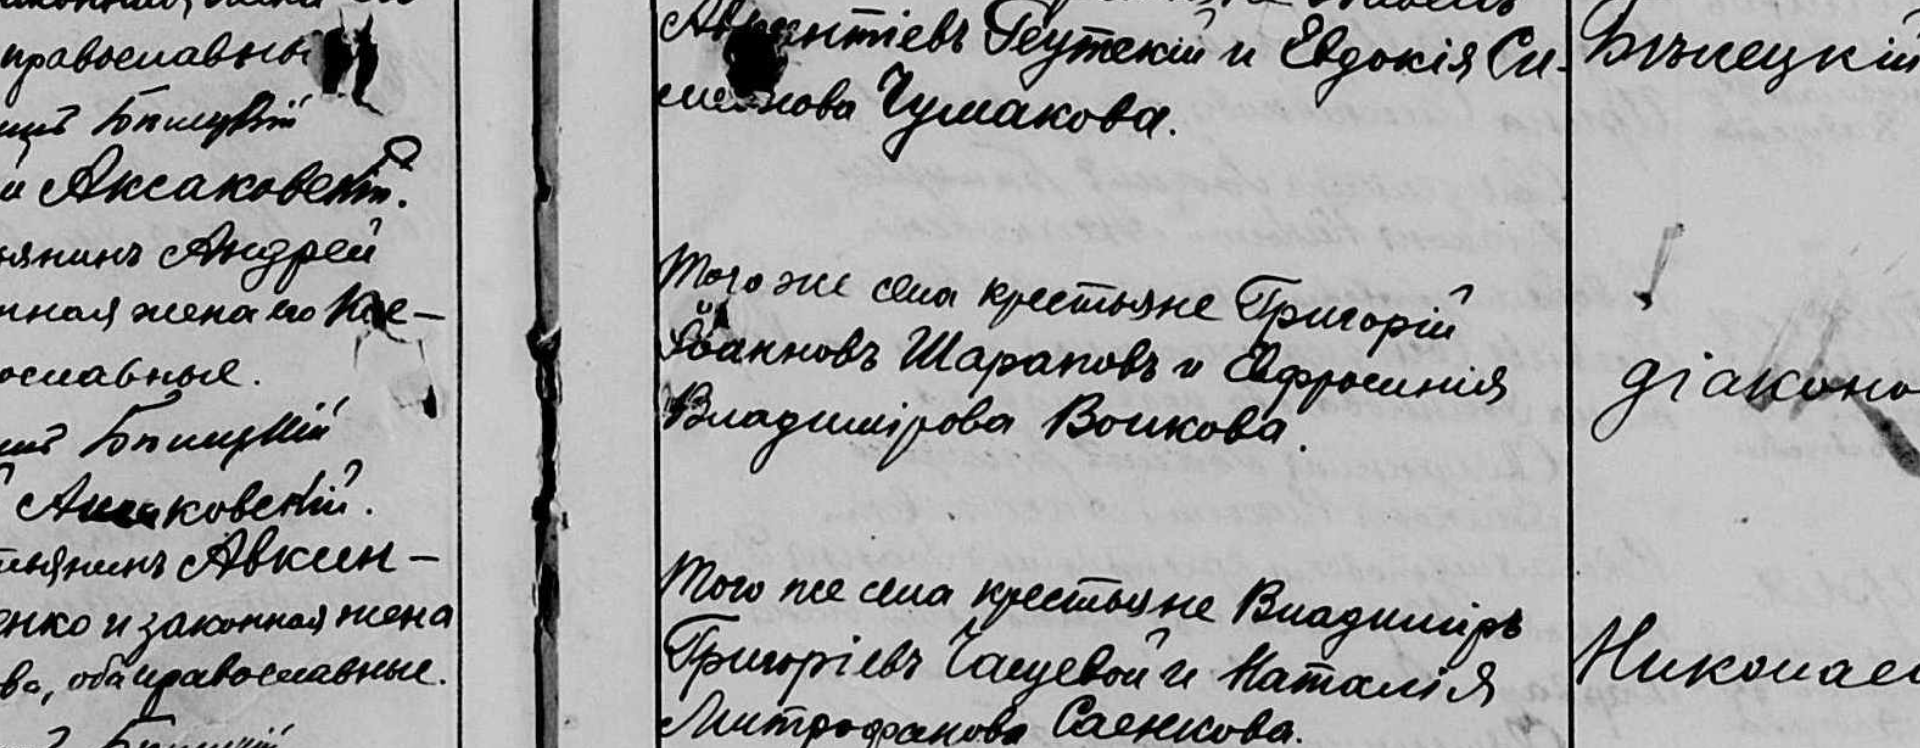 православны
Бѣлицкій
и Аксаковскій.
нянинъ Андрей
нная жена его Ксе-
ославные.
Бѣлицкій
Аксаковскій.
тьянинъ Авксен-
енко и законная жена
ва, оба православные.
Авксентіевъ Реутскій и Евдокія Си-
меонова Чумакова.
Того же села крестьяне Григорій
Іоанновъ Шараповъ и Евфросинія
Владимірова Волкова.
Того же села крестьяне Владиміръ
Григоріевъ и Наталія
Митрофанова Саенкова.
діаконо
Николае